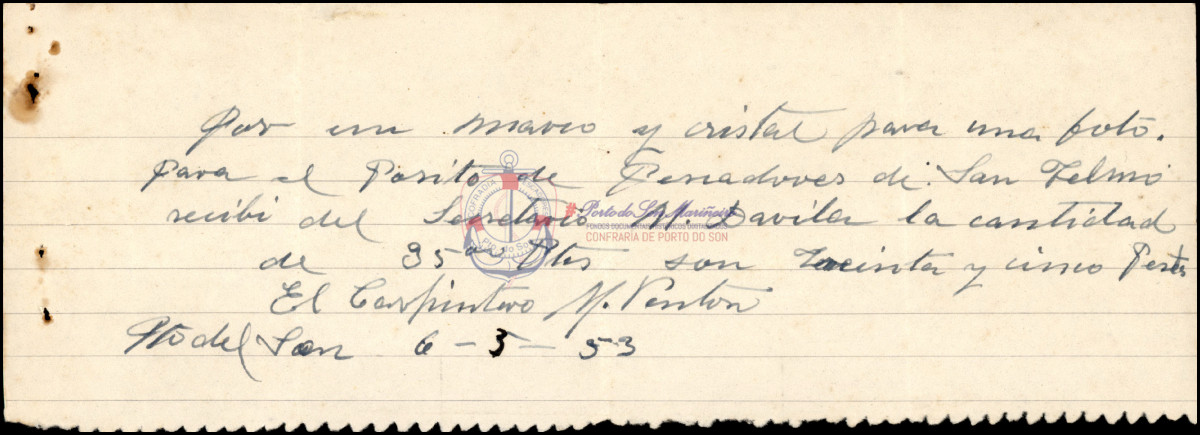 Por un marco y cristal para una foto.
para el Posito de Pescadores de San Telmo
recibi del Secretario M. Davila la cantidad
de 35 Ptes son treinta y cinco
El Carpintero M.
Pto del Son 6 - 5 - 53
#Porto do Son Mariñeiro
FONDOS DOCUMENTAIS HISTÓRICOS DIXITALIZADOS
CONFRARÍA DE PORTO DO SON